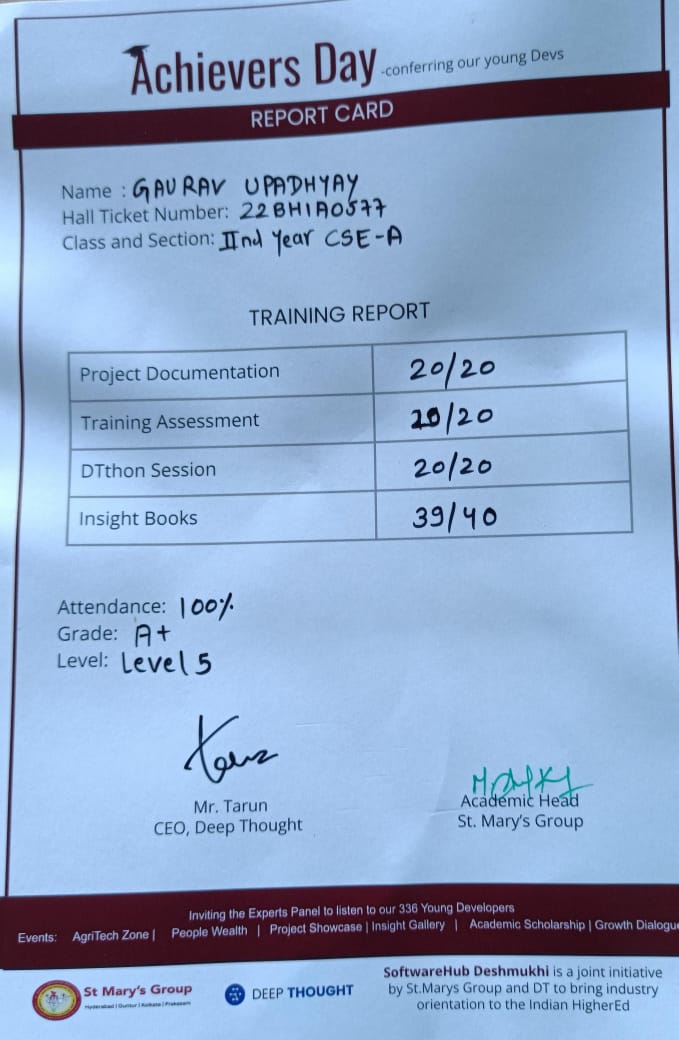 Achievers Day -conferring our young Devs
REPORT CARD
Name : GAURAV UPADHYAY
Hall Ticket Number: 22BH1A0577
Class and Section: IInd Year CSE-A
TRAINING REPORT
Project Documentation 20/20
Training Assessment 20/20
DTthon Session 20/20
Insight Books 39/40
Attendance: 100%
Grade: A+
Level: Level 5
Mr. Tarun
CEO, Deep Thought
Academic Head
St. Mary's Group
Inviting the Experts Panel to listen to our 336 Young Developers
Events: AgriTech Zone | People Wealth | Project Showcase | Insight Gallery | Academic Scholarship | Growth Dialogue
St Mary's Group
Hyderabad | Guntur | Kolkata | Prakasam
DEEP THOUGHT
SoftwareHub Deshmukhi is a joint initiative
by St.Marys Group and DT to bring industry
orientation to the Indian HigherEd